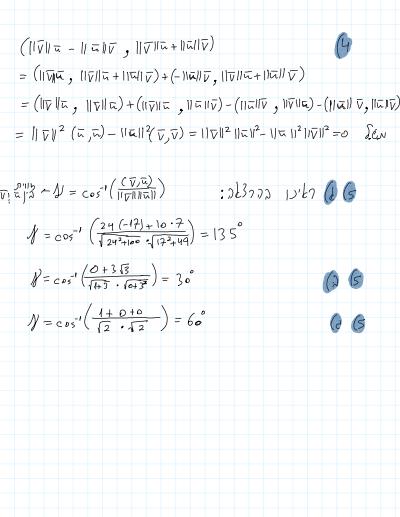 (4
(‖v̅‖u̅ − ‖u̅‖v̅ , ‖v̅‖u̅ + ‖u̅‖v̅)
= (‖v̅‖u̅, ‖v̅‖u̅ + ‖u̅‖v̅) + (−‖u̅‖v̅, ‖v̅‖u̅ + ‖u̅‖v̅)
= (‖v̅‖u̅, ‖v̅‖u̅) + (‖v̅‖u̅, ‖u̅‖v̅) − (‖u̅‖v̅, ‖v̅‖u̅) − (‖u̅‖v̅, ‖u̅‖v̅)
= ‖v̅‖² (u̅,u̅) − ‖u̅‖² (v̅,v̅) = ‖v̅‖² ‖u̅‖² − ‖u̅‖² ‖v̅‖² = 0 משל
(5 ראינו בהרצאה: γ = cos⁻¹((v̅,u̅)/(‖v̅‖‖u̅‖))
γ = cos⁻¹((24(−17)+10·7)/(√(24²+100) · √(17²+49))) = 135°
(5 γ = cos⁻¹((0+3√3)/(√(1+3) · √(0+3²))) = 30°
(5 γ = cos⁻¹((1+0+0)/(√2 · √2)) = 60°